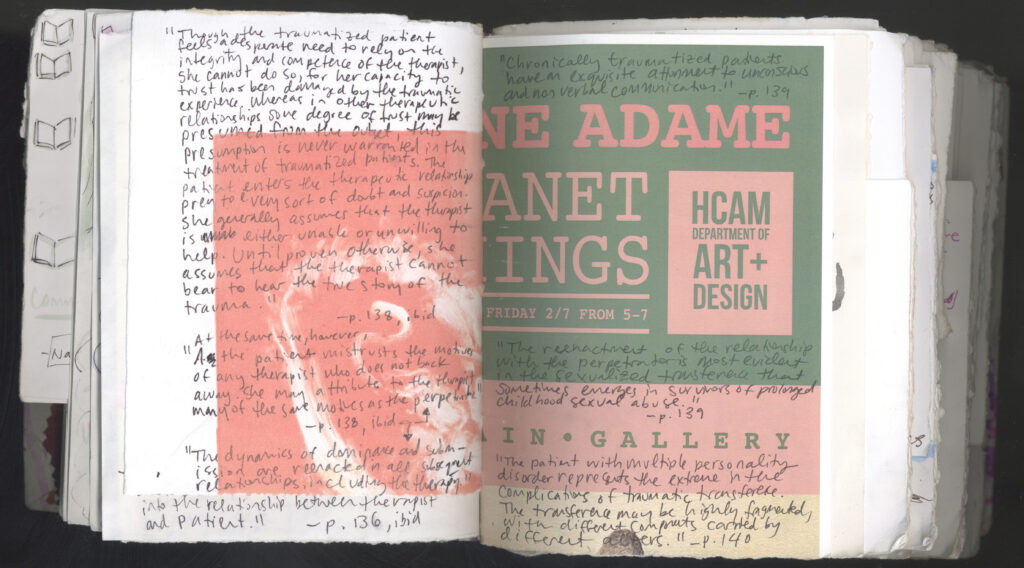 "Though the traumatized patient
feels a desperate need to rely on the
integrity and competence of the therapist,
she cannot do so, for her capacity to
trust has been damaged by the traumatic
experience. Whereas in other therapeutic
relationships some degree of trust may be
presumed from the outset, this
presumption is never warranted in the
treatment of traumatized patients. The
patient enters the therapeutic relationship
prey to every sort of doubt and suspicion.
She generally assumes that the therapist
is either unable or unwilling to
help. Until proven otherwise, she
assumes that the therapist cannot
bear to hear the true story of the
trauma."
—p. 138, ibid
At the same time, however,
"As the patient mistrusts the motives
of any therapist who does not back
away. She may attribute to the therapist
many of the same motives as the perpetrator."
—p. 138, ibid
"The dynamics of dominance and subm-
ission are reenacted in all subsequent
relationships, including the therapy."
into the relationship between therapist
and patient."
—p. 136, ibid
Comm
Na
"Chronically traumatized patients
have an exquisite attunement to unconscious
and nonverbal communication."
—p. 139
NE ADAME
ANET
INGS
FRIDAY 2/7 FROM 5-7
HCAM
DEPARTMENT OF
ART+
DESIGN
"The reenactment of the relationship
with the perpetrator is most evident
in the sexualized transference that
sometimes emerges in survivors of prolonged
childhood sexual abuse."
—p. 139
AIN•GALLERY
"The patient with multiple personality
disorder represents the extreme in the
complications of traumatic transference.
The transference may be highly fragmented,
with different components carried by
different alters." —p. 140